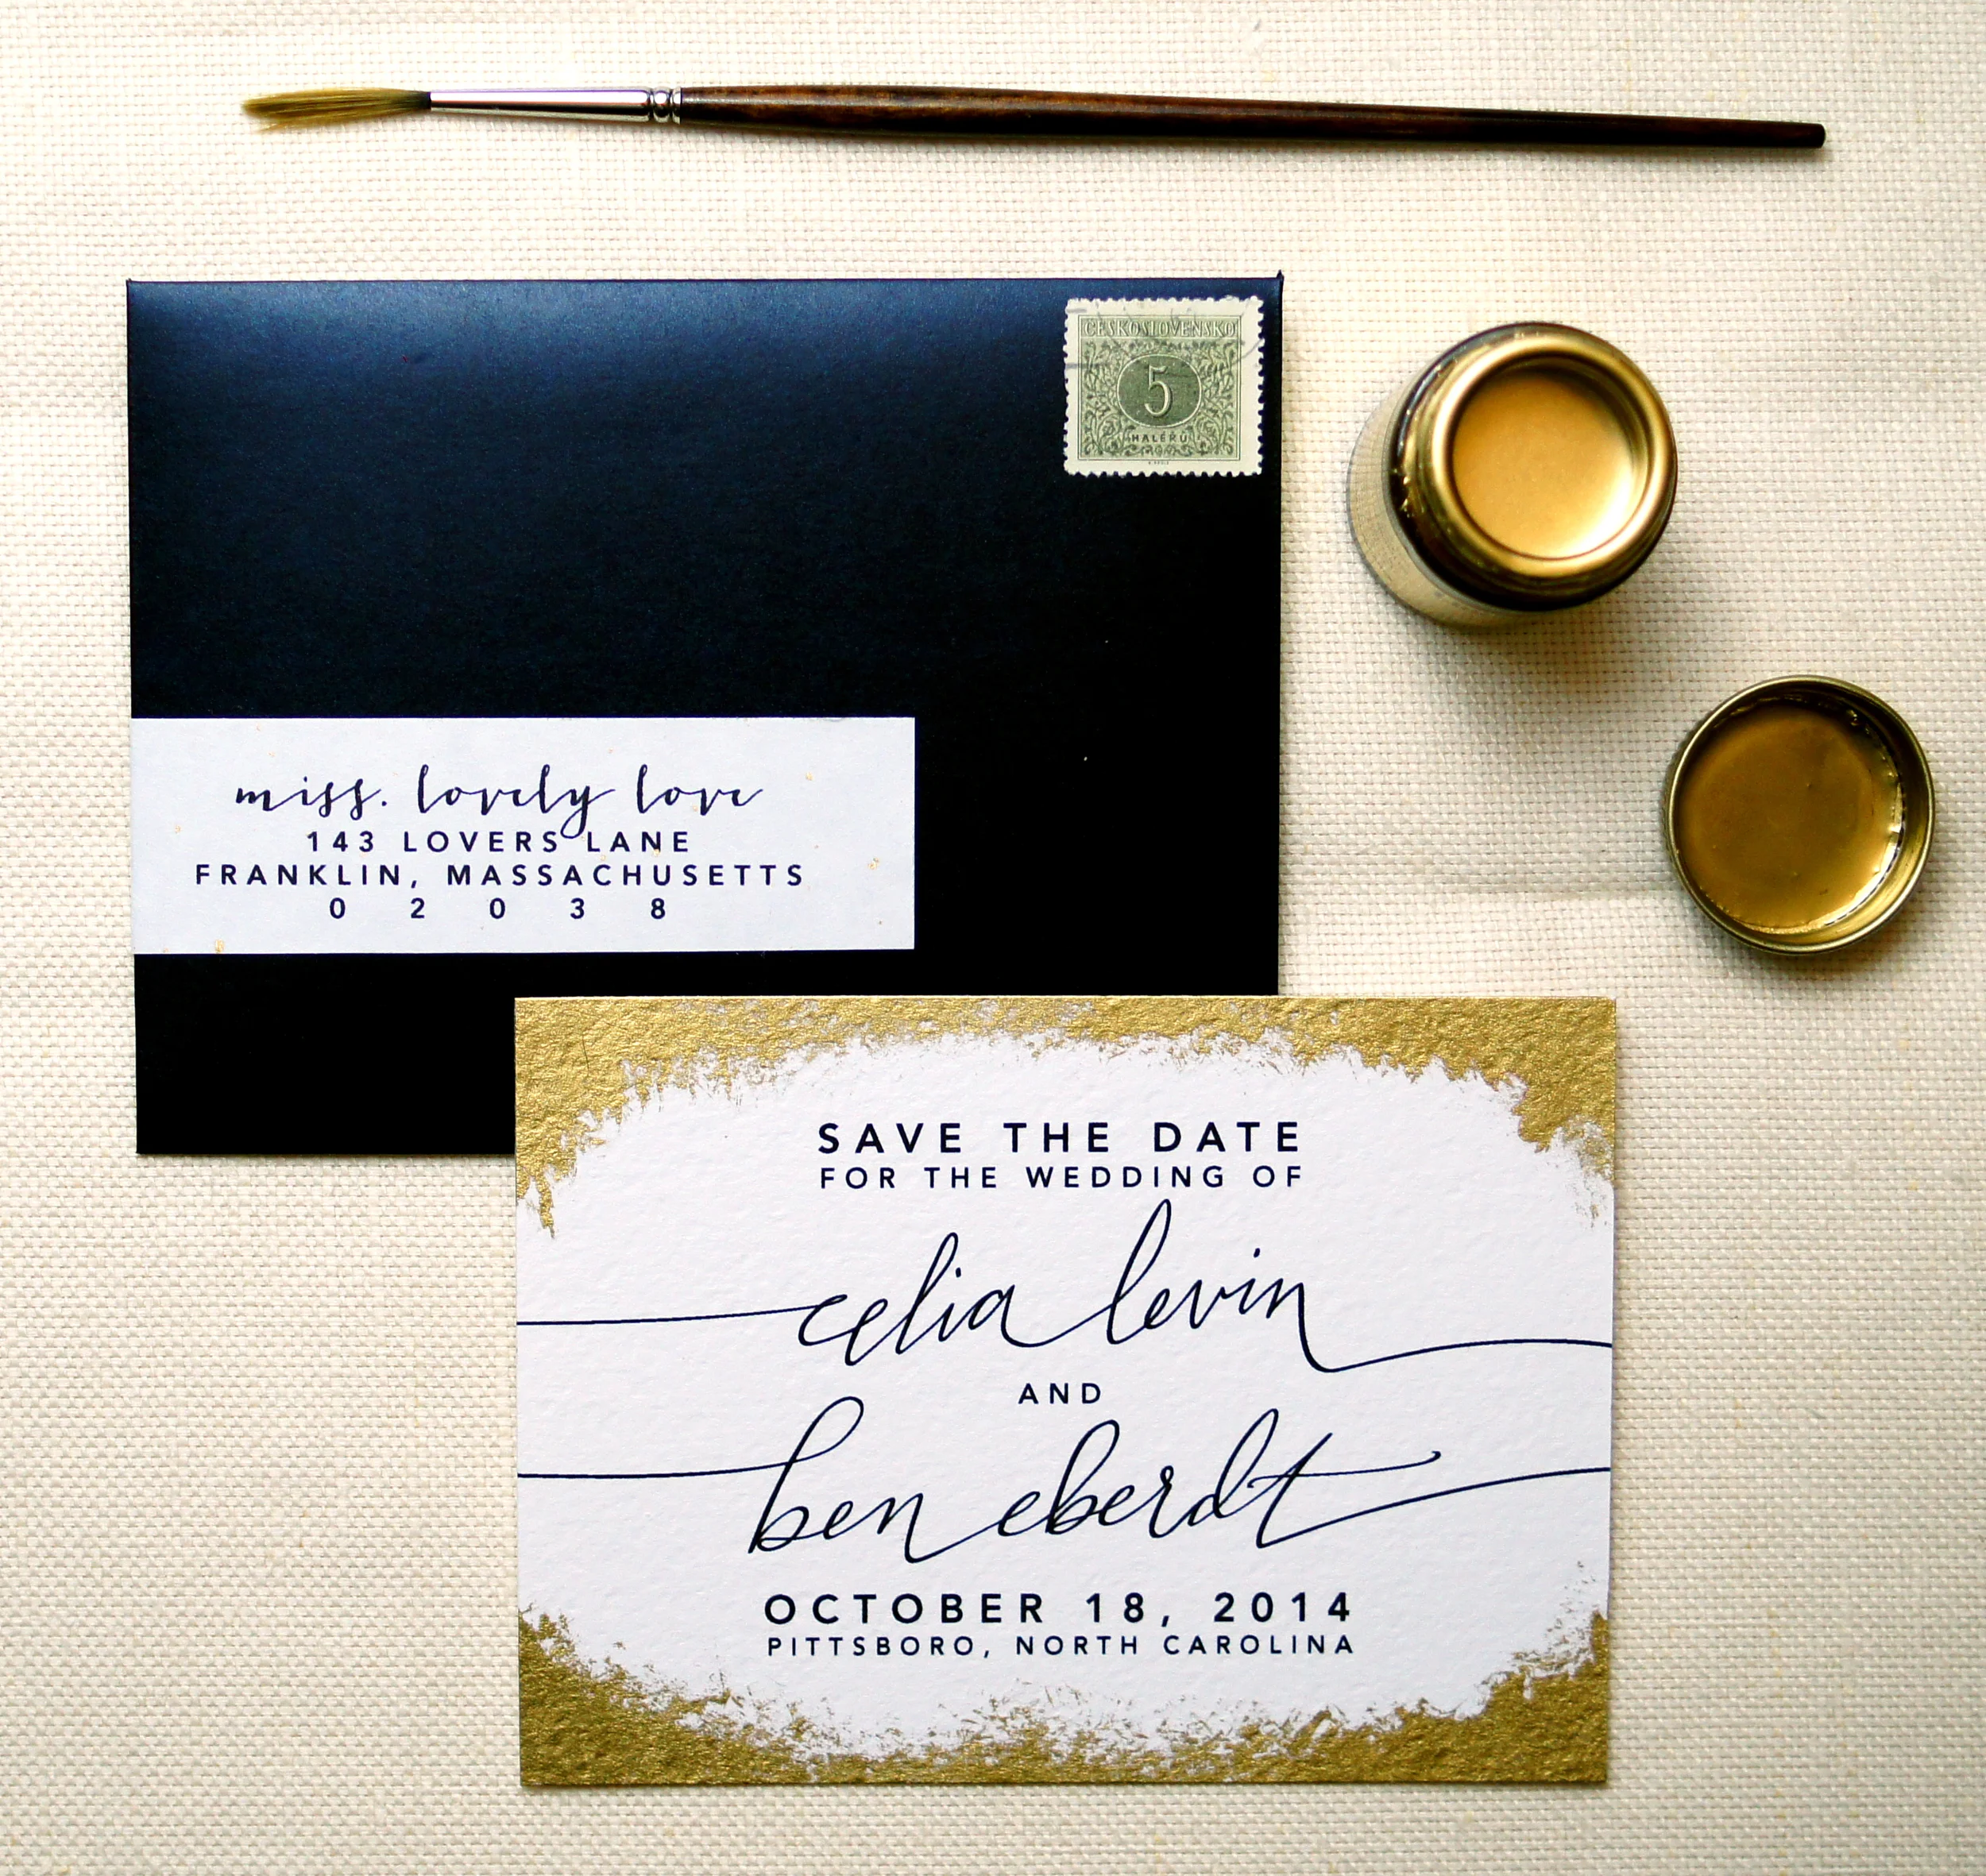 ČESKOSLOVENSKO
5
HALÉŘŮ
miss. lovely love
143 LOVERS LANE
FRANKLIN, MASSACHUSETTS
02038
SAVE THE DATE
FOR THE WEDDING OF
celia levin
AND
ben eberdt
OCTOBER 18, 2014
PITTSBORO, NORTH CAROLINA